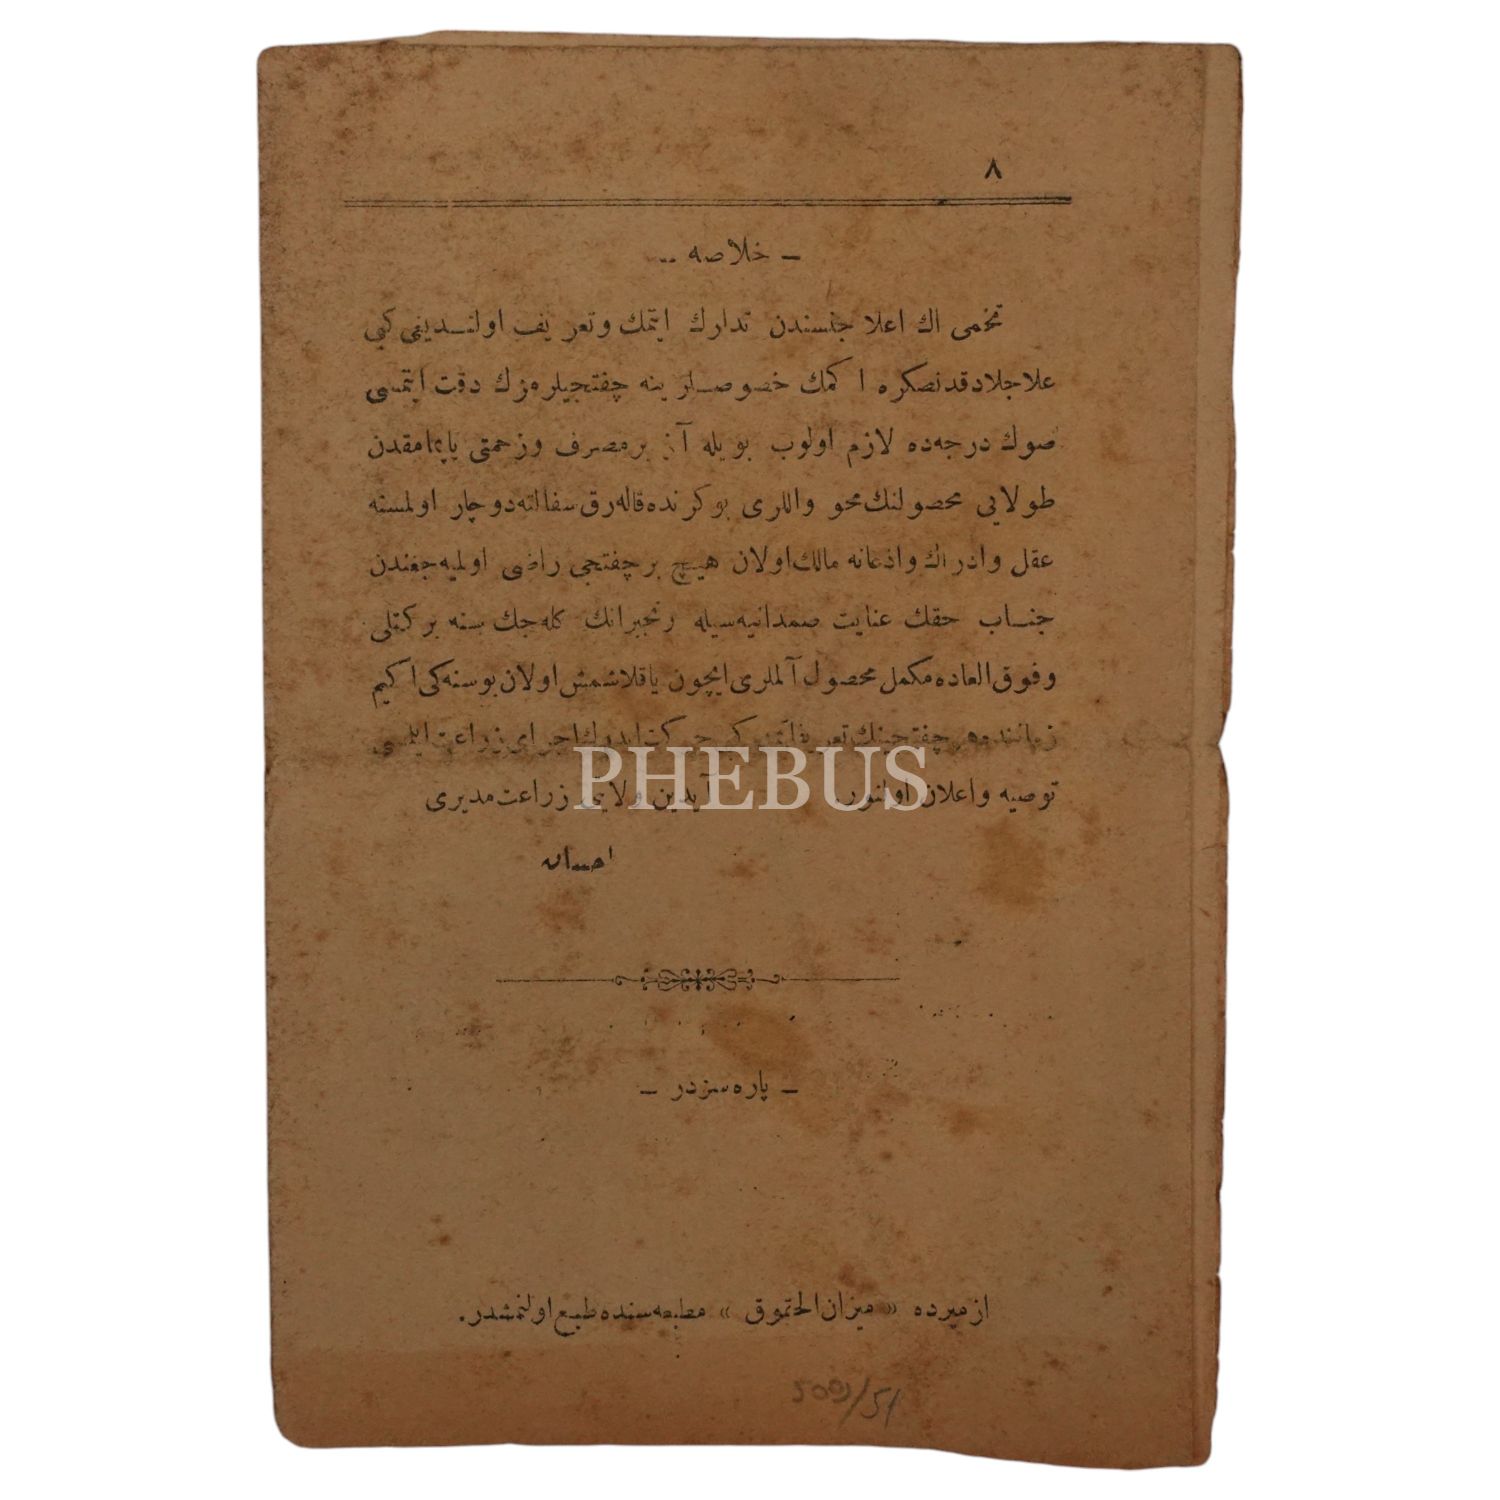 ٨
— خلاصه —
تخمى اك اعلا جنسندن تدارك ايتمك و تعريف اولنديغى كبى
علاجلادقدنصكره اكمك خصوصلرينه چفتجيلرمزك دقت ايتمسى
صوك درجه‌ده لازم اولوب بويله آز بر مصرف و زحمتى ياپمامقدن
طولايى محصولنك محو واللرى بوكرنده قاله‌رق سفالته دوچار اولمسنه
عقل و ادراك و اذعانه مالك اولان هيچ بر چفتجى راضى اوليه‌جغندن
جناب حقك عنايت صمدانيه‌سيله رنجبرانك كله‌جك سنه بركتلى
و فوق العاده مكمل محصول آلملرى ايچون ياقلاشمش اولان بو سنه‌كى اكيم
زماننده هر چفتجينك تعريفاتمز كبى حركت ايدرك اجراى زراعت ايلمسى
توصيه و اعلان اولنور آيدين ولايتى زراعت مديرى
احسان
— پاره‌سزدر —
ازميرده « ميزان الحقوق » مطبعه‌سنده طبع اولنمشدر.
PHEBUS